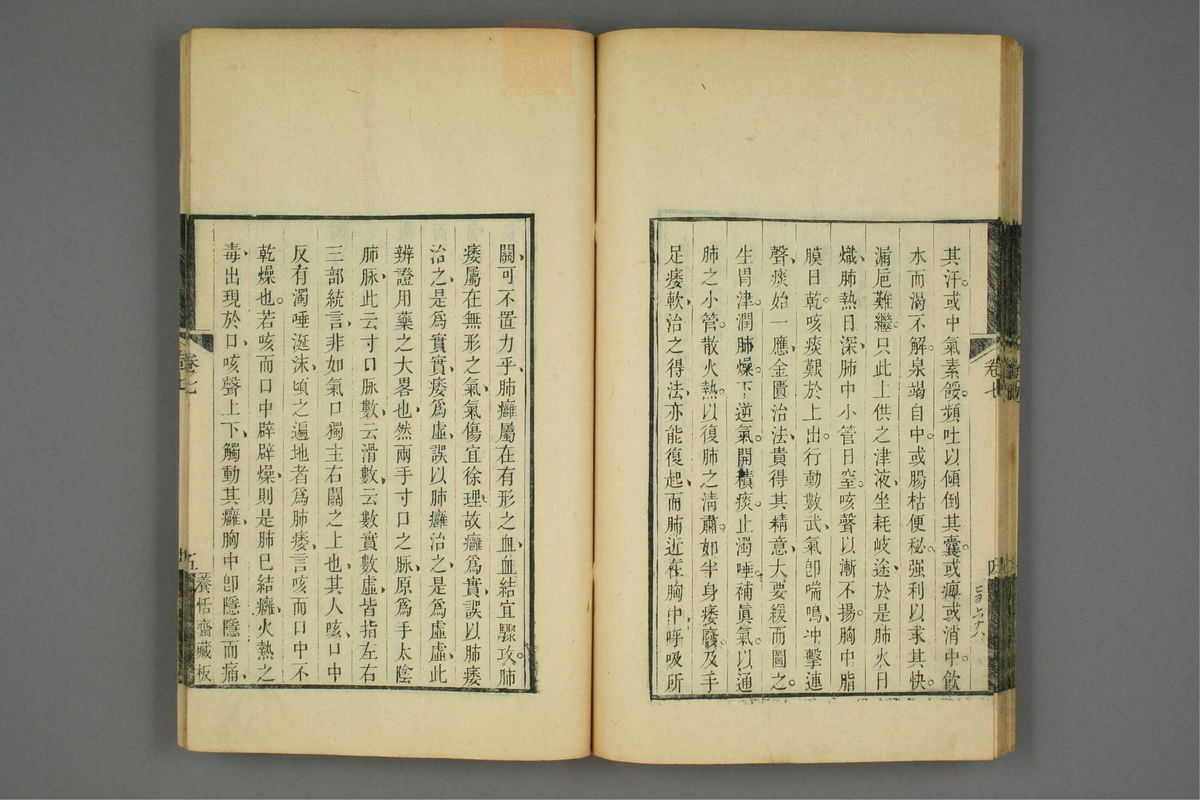 其汗。或中氣素餒。頻吐以傾倒其囊。或癉或消中。飲
水而渴不解泉竭自中。或腸枯便秘。强利以求其快。
漏巵難繼。只此上供之津液、坐耗岐途、於是肺火日
熾、肺熱日深、肺中小管日窒。咳聲以漸不揚。胸中脂
膜日乾。咳痰艱於上出。行動數武、氣卽喘鳴、冲擊連
聲、痰始一應、金匱治法、貴得其精意、大要緩而圖之。
生胃津。潤肺燥。下逆氣。開積痰。止濁唾。補眞氣。以通
肺之小管。散火熱。以復肺之淸肅。如半身痿廢。及手
足痿軟、治之得法、亦能復起、而肺近在胸中、呼吸所
卷七
四
關、可不置力乎、肺癰屬在有形之血、血結宜驟攻。肺
痿屬在無形之氣、氣傷宜徐理、故癰爲實、誤以肺痿
治之、是爲實實、痿爲虛、誤以肺癰治之、是爲虛虛、此
辨證用藥之大畧也、然兩手寸口之脈、原爲手太陰
肺脈、此云寸口脈數、云滑數、云數實數虛、皆指左右
三部統言、非如氣口獨主右關之上也、其人咳、口中
反有濁唾涎沫、頃之遍地者爲肺痿、言咳而口中不
乾燥也。若咳而口中辟辟燥則是肺已結癰、火熱之
毒出現於口、咳聲上下、觸動其癰、胸中卽隱隱而痛、
卷七
五
養恬齋藏板